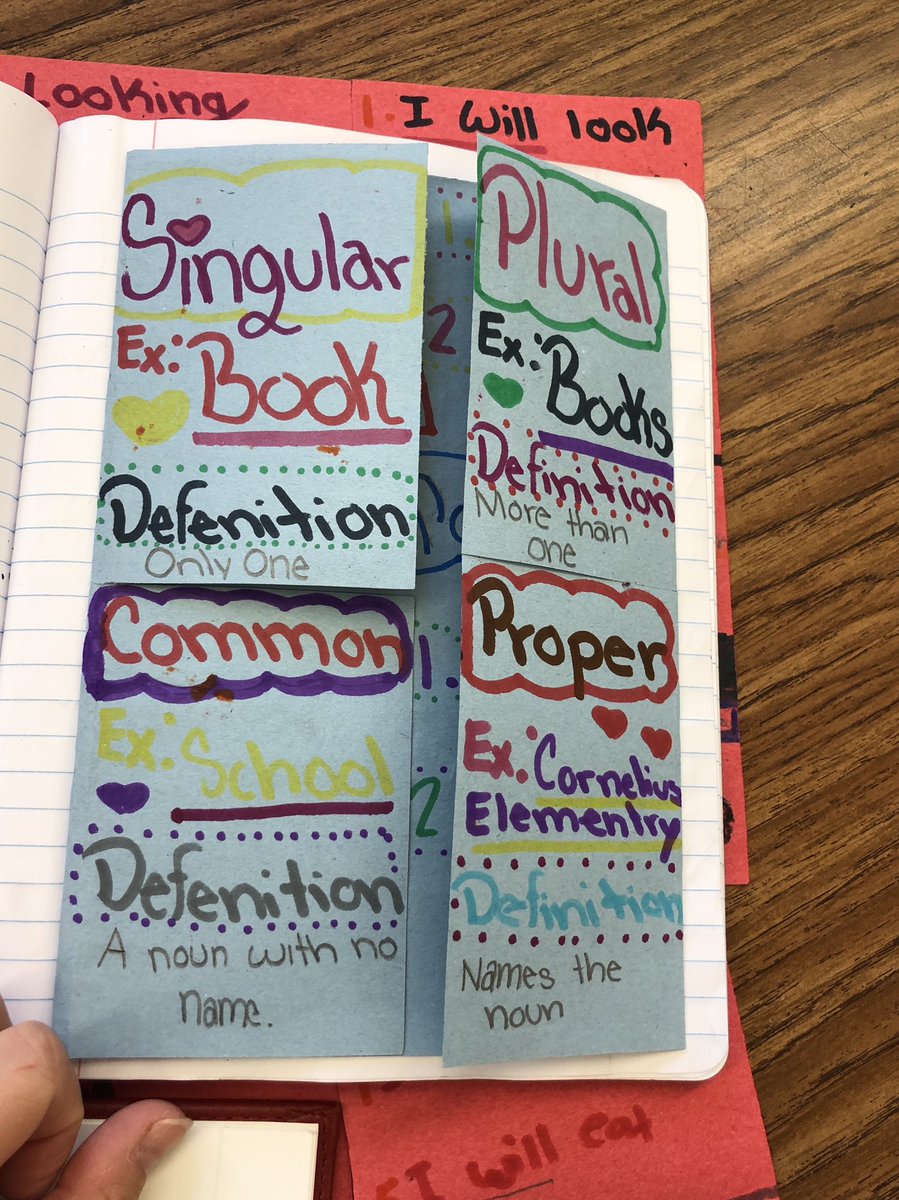 Looking
1. I will look
Singular
Ex: Book
Defenition
Only One
Plural
Ex: Books
Definition
More than
one
Common
Ex: School
Defenition
A noun with no
name.
Proper
Ex: Cornelius
Elementry
Definition
Names the
noun
1.
2
1.
2
I will eat